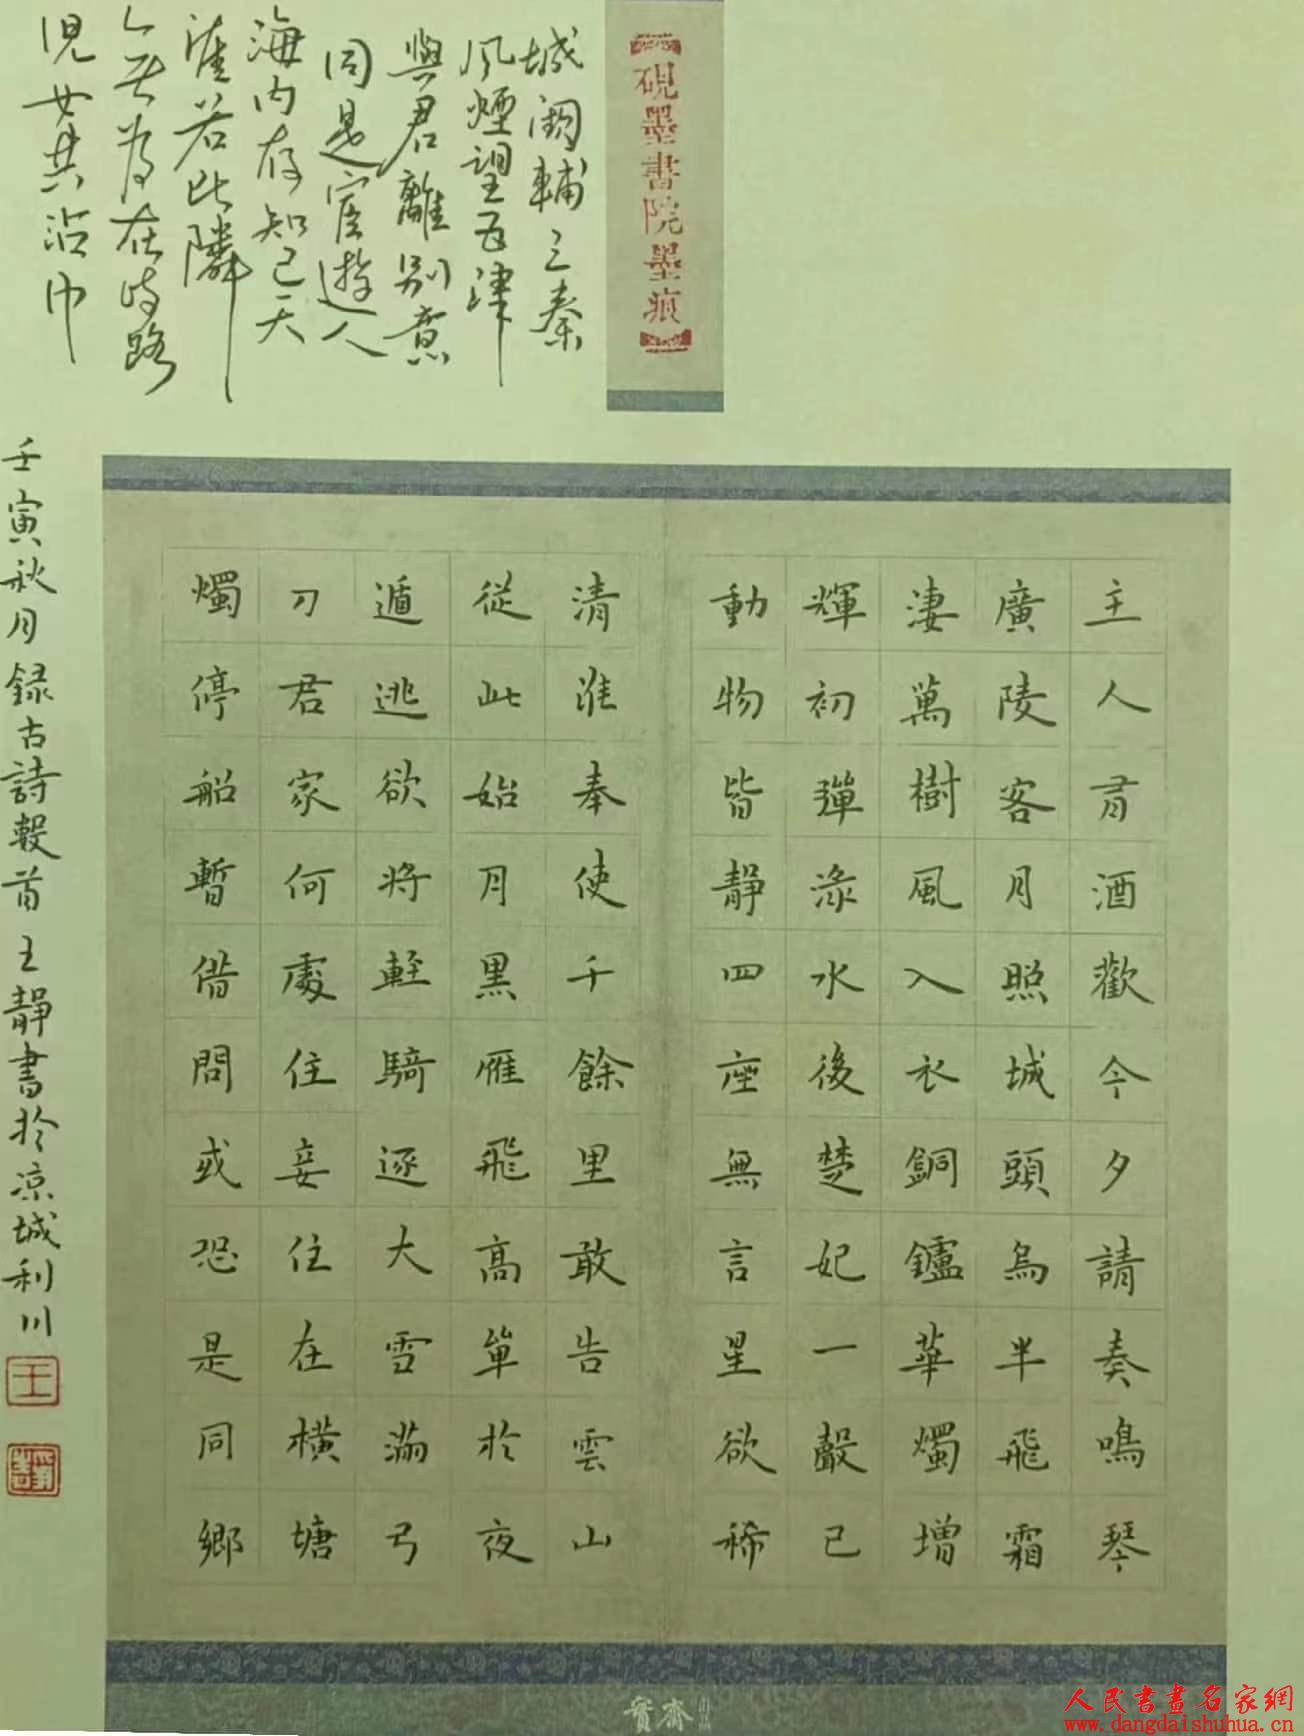 【硯墨書院墨痕】
城闕輔三秦
風煙望五津
與君離別意
同是宦遊人
海内存知己天
涯若比隣
無為在歧路
兒女共沾巾
主人有酒歡今夕請奏鳴琴
廣陵客月照城頭烏半飛霜
淒萬樹風入衣銅鑪華燭增
輝初彈淥水後楚妃一聲已
動物皆靜四座無言星欲稀
清淮奉使千餘里敢告雲山
從此始月黑雁飛高單於夜
遁逃欲將輕騎逐大雪滿弓
刀君家何處住妾住在橫塘
燭停船暫借問或恐是同鄉
壬寅秋月録古詩數首王靜書於凉城利川
王
寶齋
人民書畫名家網
www.dangdaishuhua.cn